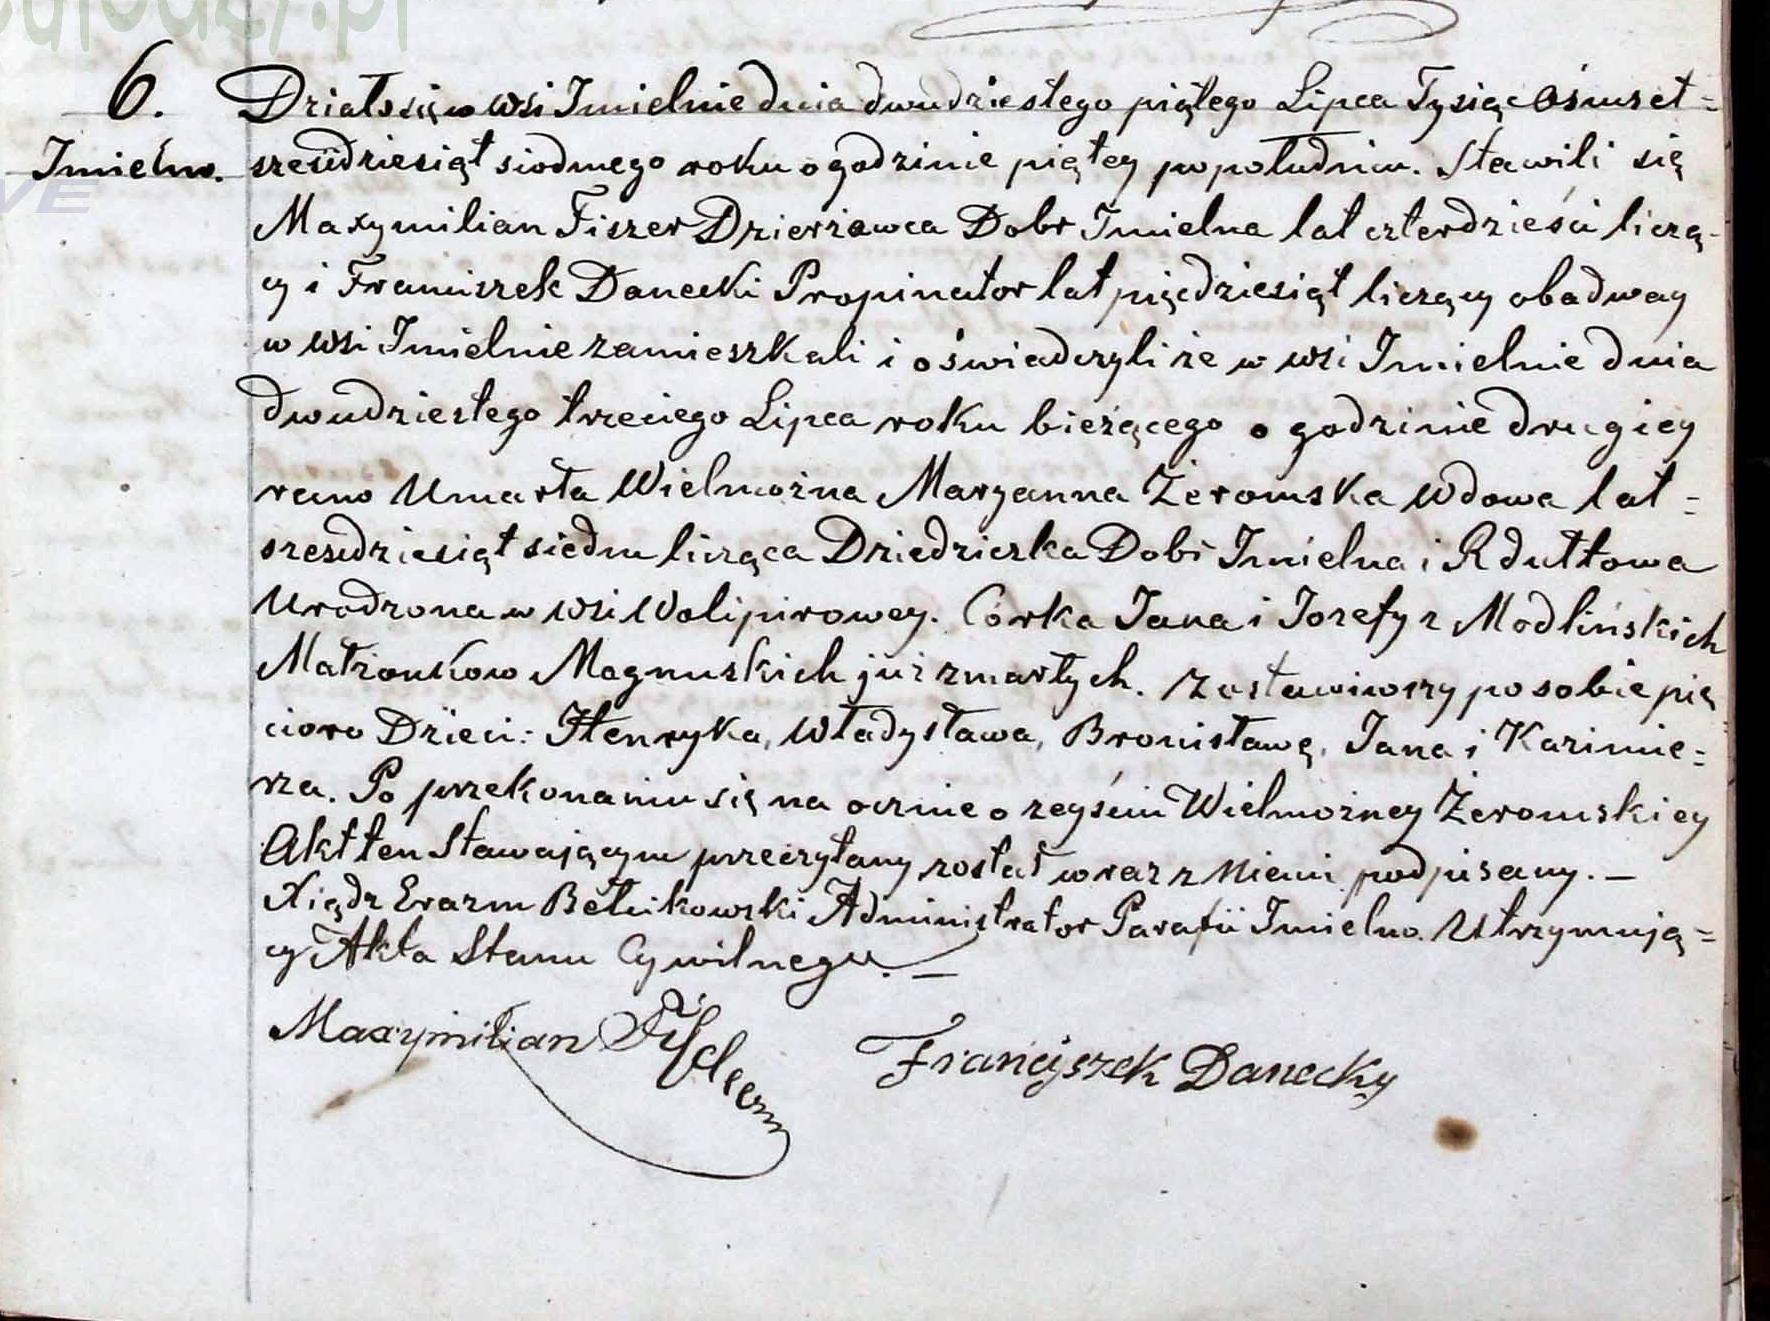 6.
Imielno.
Działo się w wsi Imielnie dnia dwudziestego piątego Lipca Tysiąc ośmset=
sześdziesiąt siodmego roku o godzinie piątey popołudniu. Stawili się
Maxymilian Fiszer Dzierżawca Dobr Imielna lat czterdzieści liczą-
cy i Franciszek Danecki Propinator lat pięćdziesiąt liczący obadway
w wsi Imielnie zamieszkali i oświadczyli że w wsi Imielnie dnia
dwudziestego trzeciego Lipca roku bieżącego o godzinie drugiey
rano Umarła Wielmożna Maryanna Żeromska wdowa lat=
sześdziesiąt siedm licząca Dziedziczka Dobr Imielna i Rdułtowa
Urodzona w wsi Wolipirowey. Córka Jana i Jozefy z Modlińskich
Małżonkow Magnuskich już zmarłych. Zostawiwszy po sobie pię
cioro Dzieci: Henryka, Władysława, Bronisławę, Jana i Kazimie=
rza. Po przekonaniu się na ocznie o zeyściu Wielmożney Żeromskiey
Akt ten Stawającym przeczytany został wraz z Niemi podpisany. —
Xiądz Erazm Betcikowski Administrator Parafii Imielno. Utrzymują=
cy Akta Stanu Cywilnego. —
Maxymilian Fischer
Franciszek Danecky